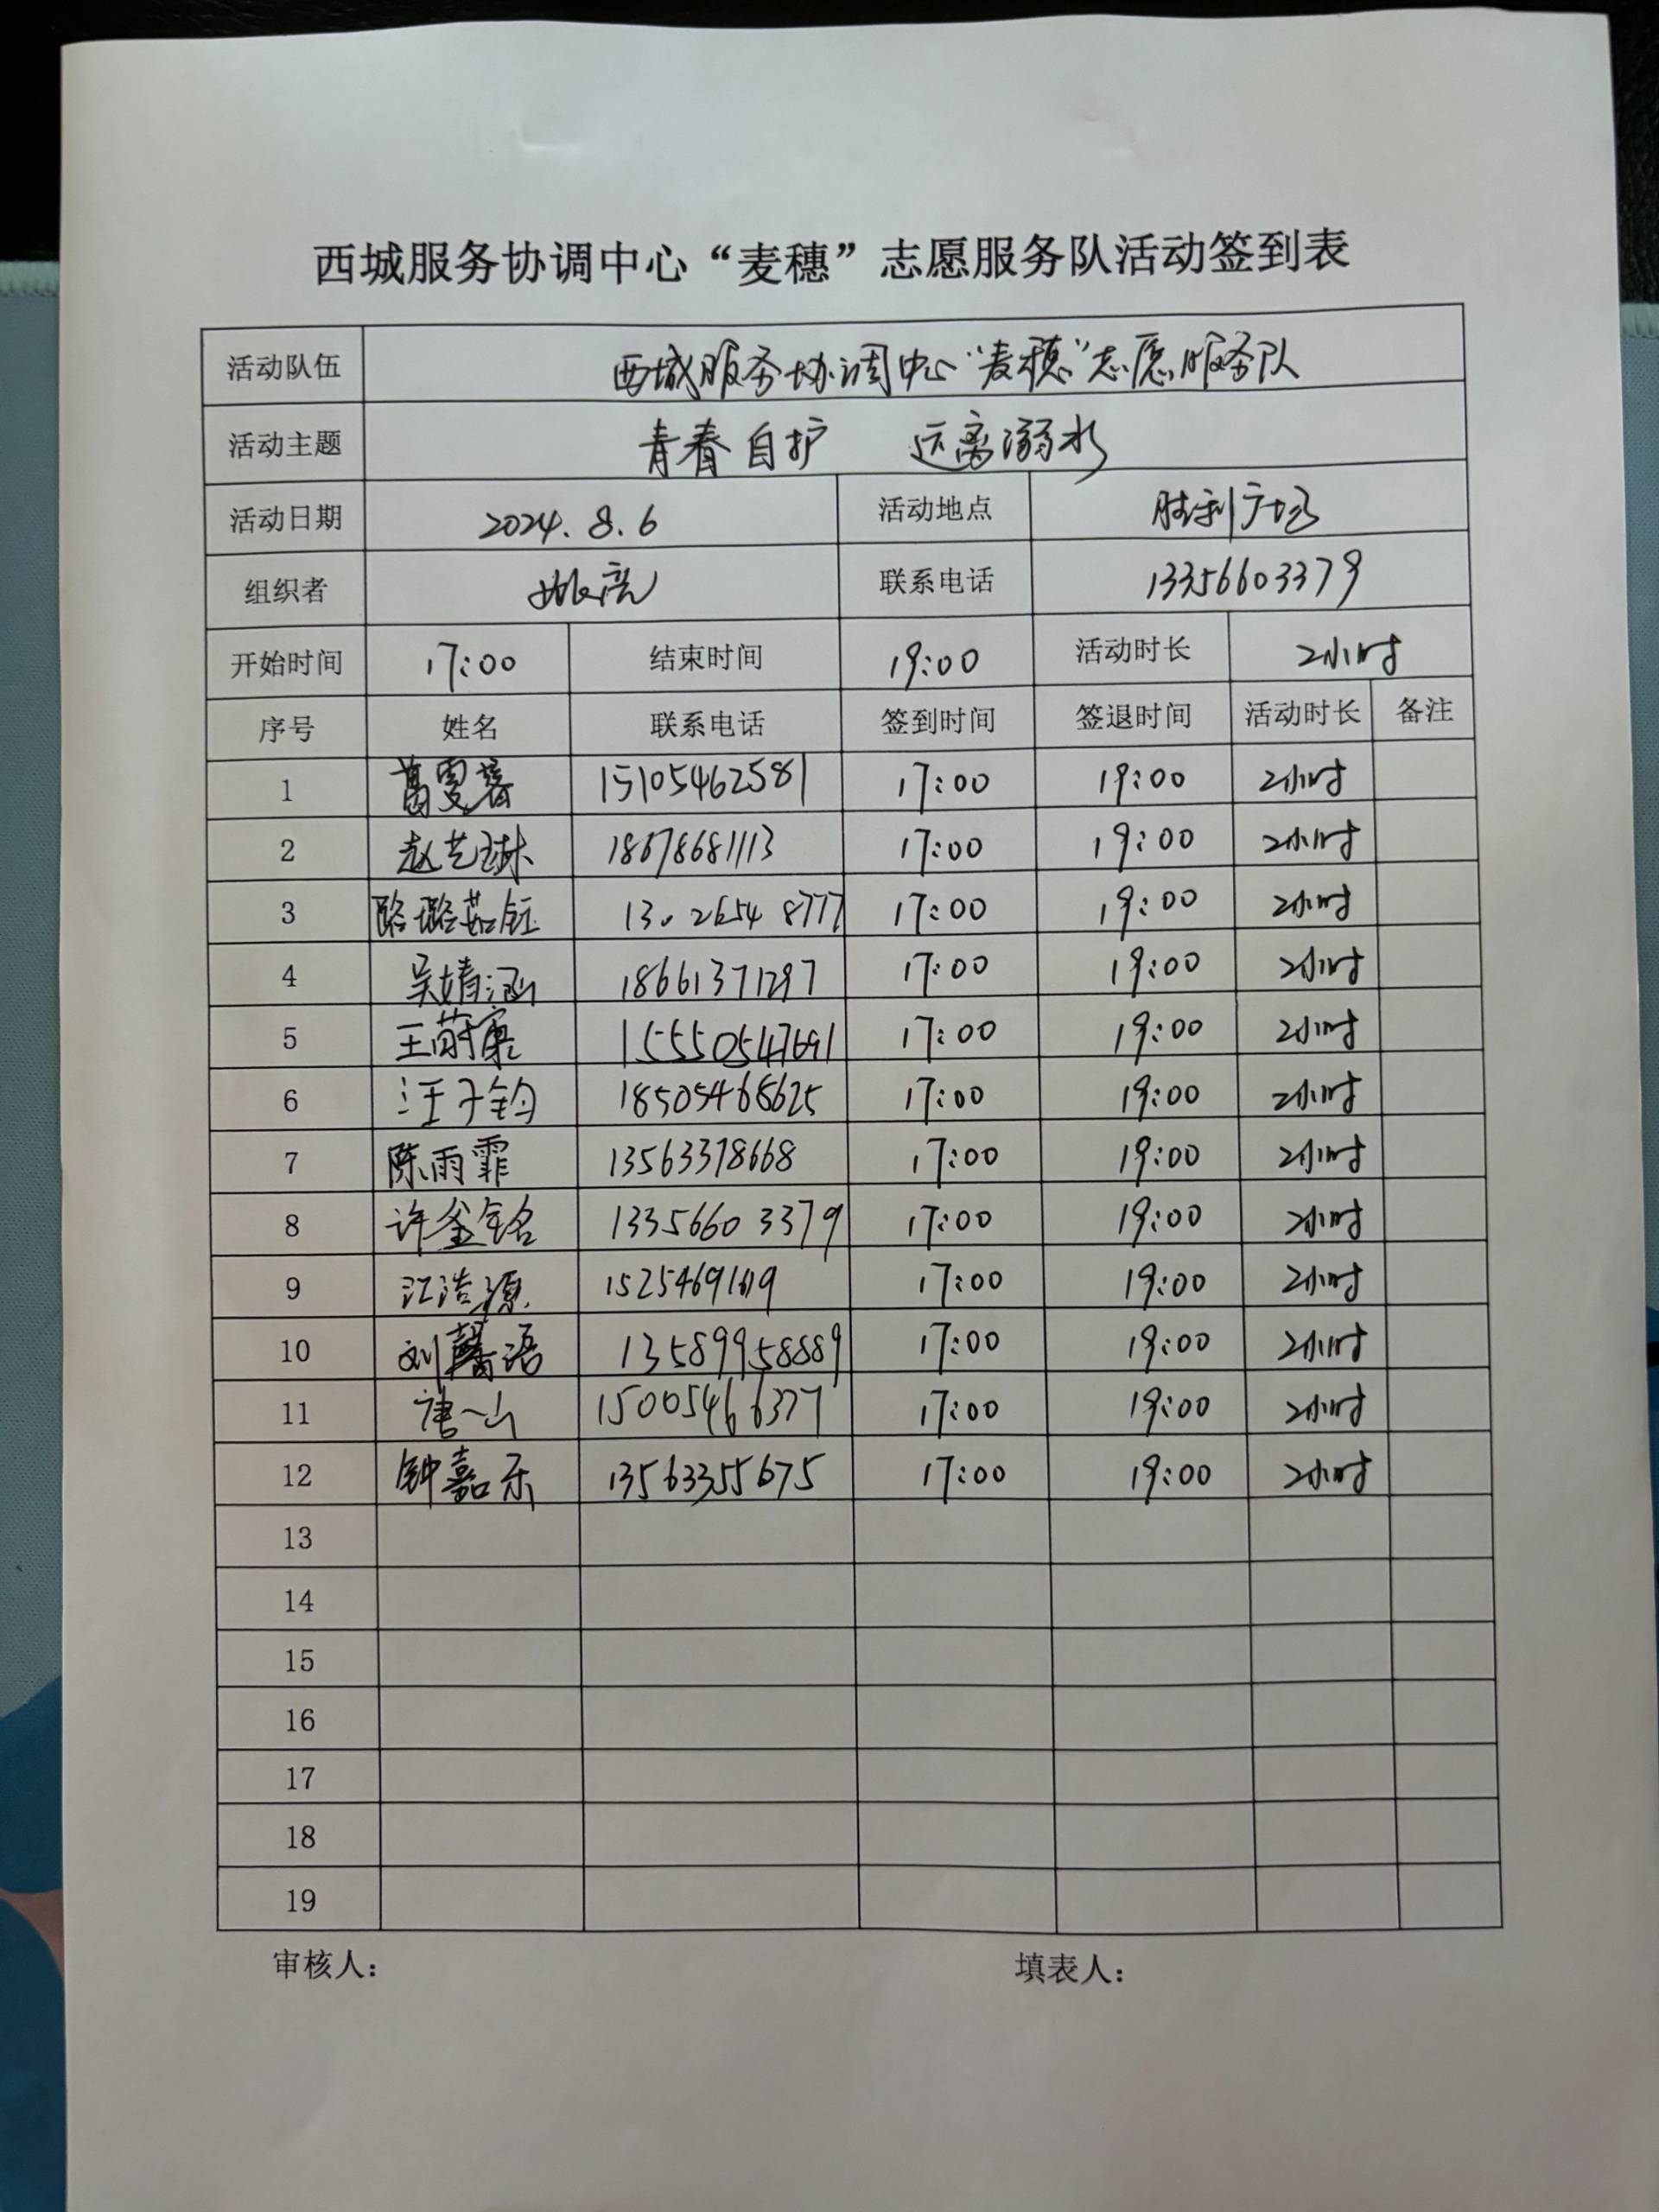 西城服务协调中心“麦穗”志愿服务队活动签到表
活动队伍 西城服务协调中心“麦穗”志愿服务队
活动主题 青春自护 远离溺水
活动日期 2024.8.6 活动地点 胜利广场
组织者 联系电话 13356603379
开始时间 17:00 结束时间 19:00 活动时长 2小时
序号 姓名 联系电话 签到时间 签退时间 活动时长 备注
1 葛雯蓉 15105462581 17:00 19:00 2小时
2 赵艺琳 18678681113 17:00 19:00 2小时
3 17:00 19:00 2小时
4 吴婧涵 18661371297 17:00 19:00 2小时
5 15550547691 17:00 19:00 2小时
6 汪子钧 18505468625 17:00 19:00 2小时
7 陈雨霏 13563378668 17:00 19:00 2小时
8 许釜铭 13356603379 17:00 19:00 2小时
9 江浩源 17:00 19:00 2小时
10 刘馨语 13589958889 17:00 19:00 2小时
11 唐一山 15005466377 17:00 19:00 2小时
12 钟嘉乐 13563355675 17:00 19:00 2小时
13
14
15
16
17
18
19
审核人： 填表人：